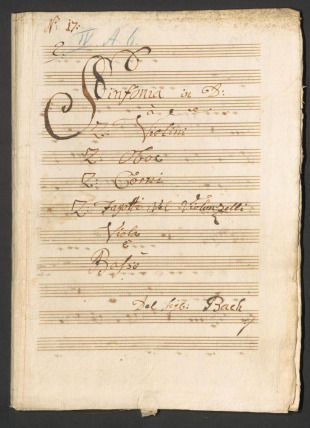 No. 17:
IV A 6.
Sinfonia in D:
à
2: Violini
2: Oboe
2: Corni
2: Fagotti vel Violonzelli
Viola
e
Basso
Del Sigl: Bach